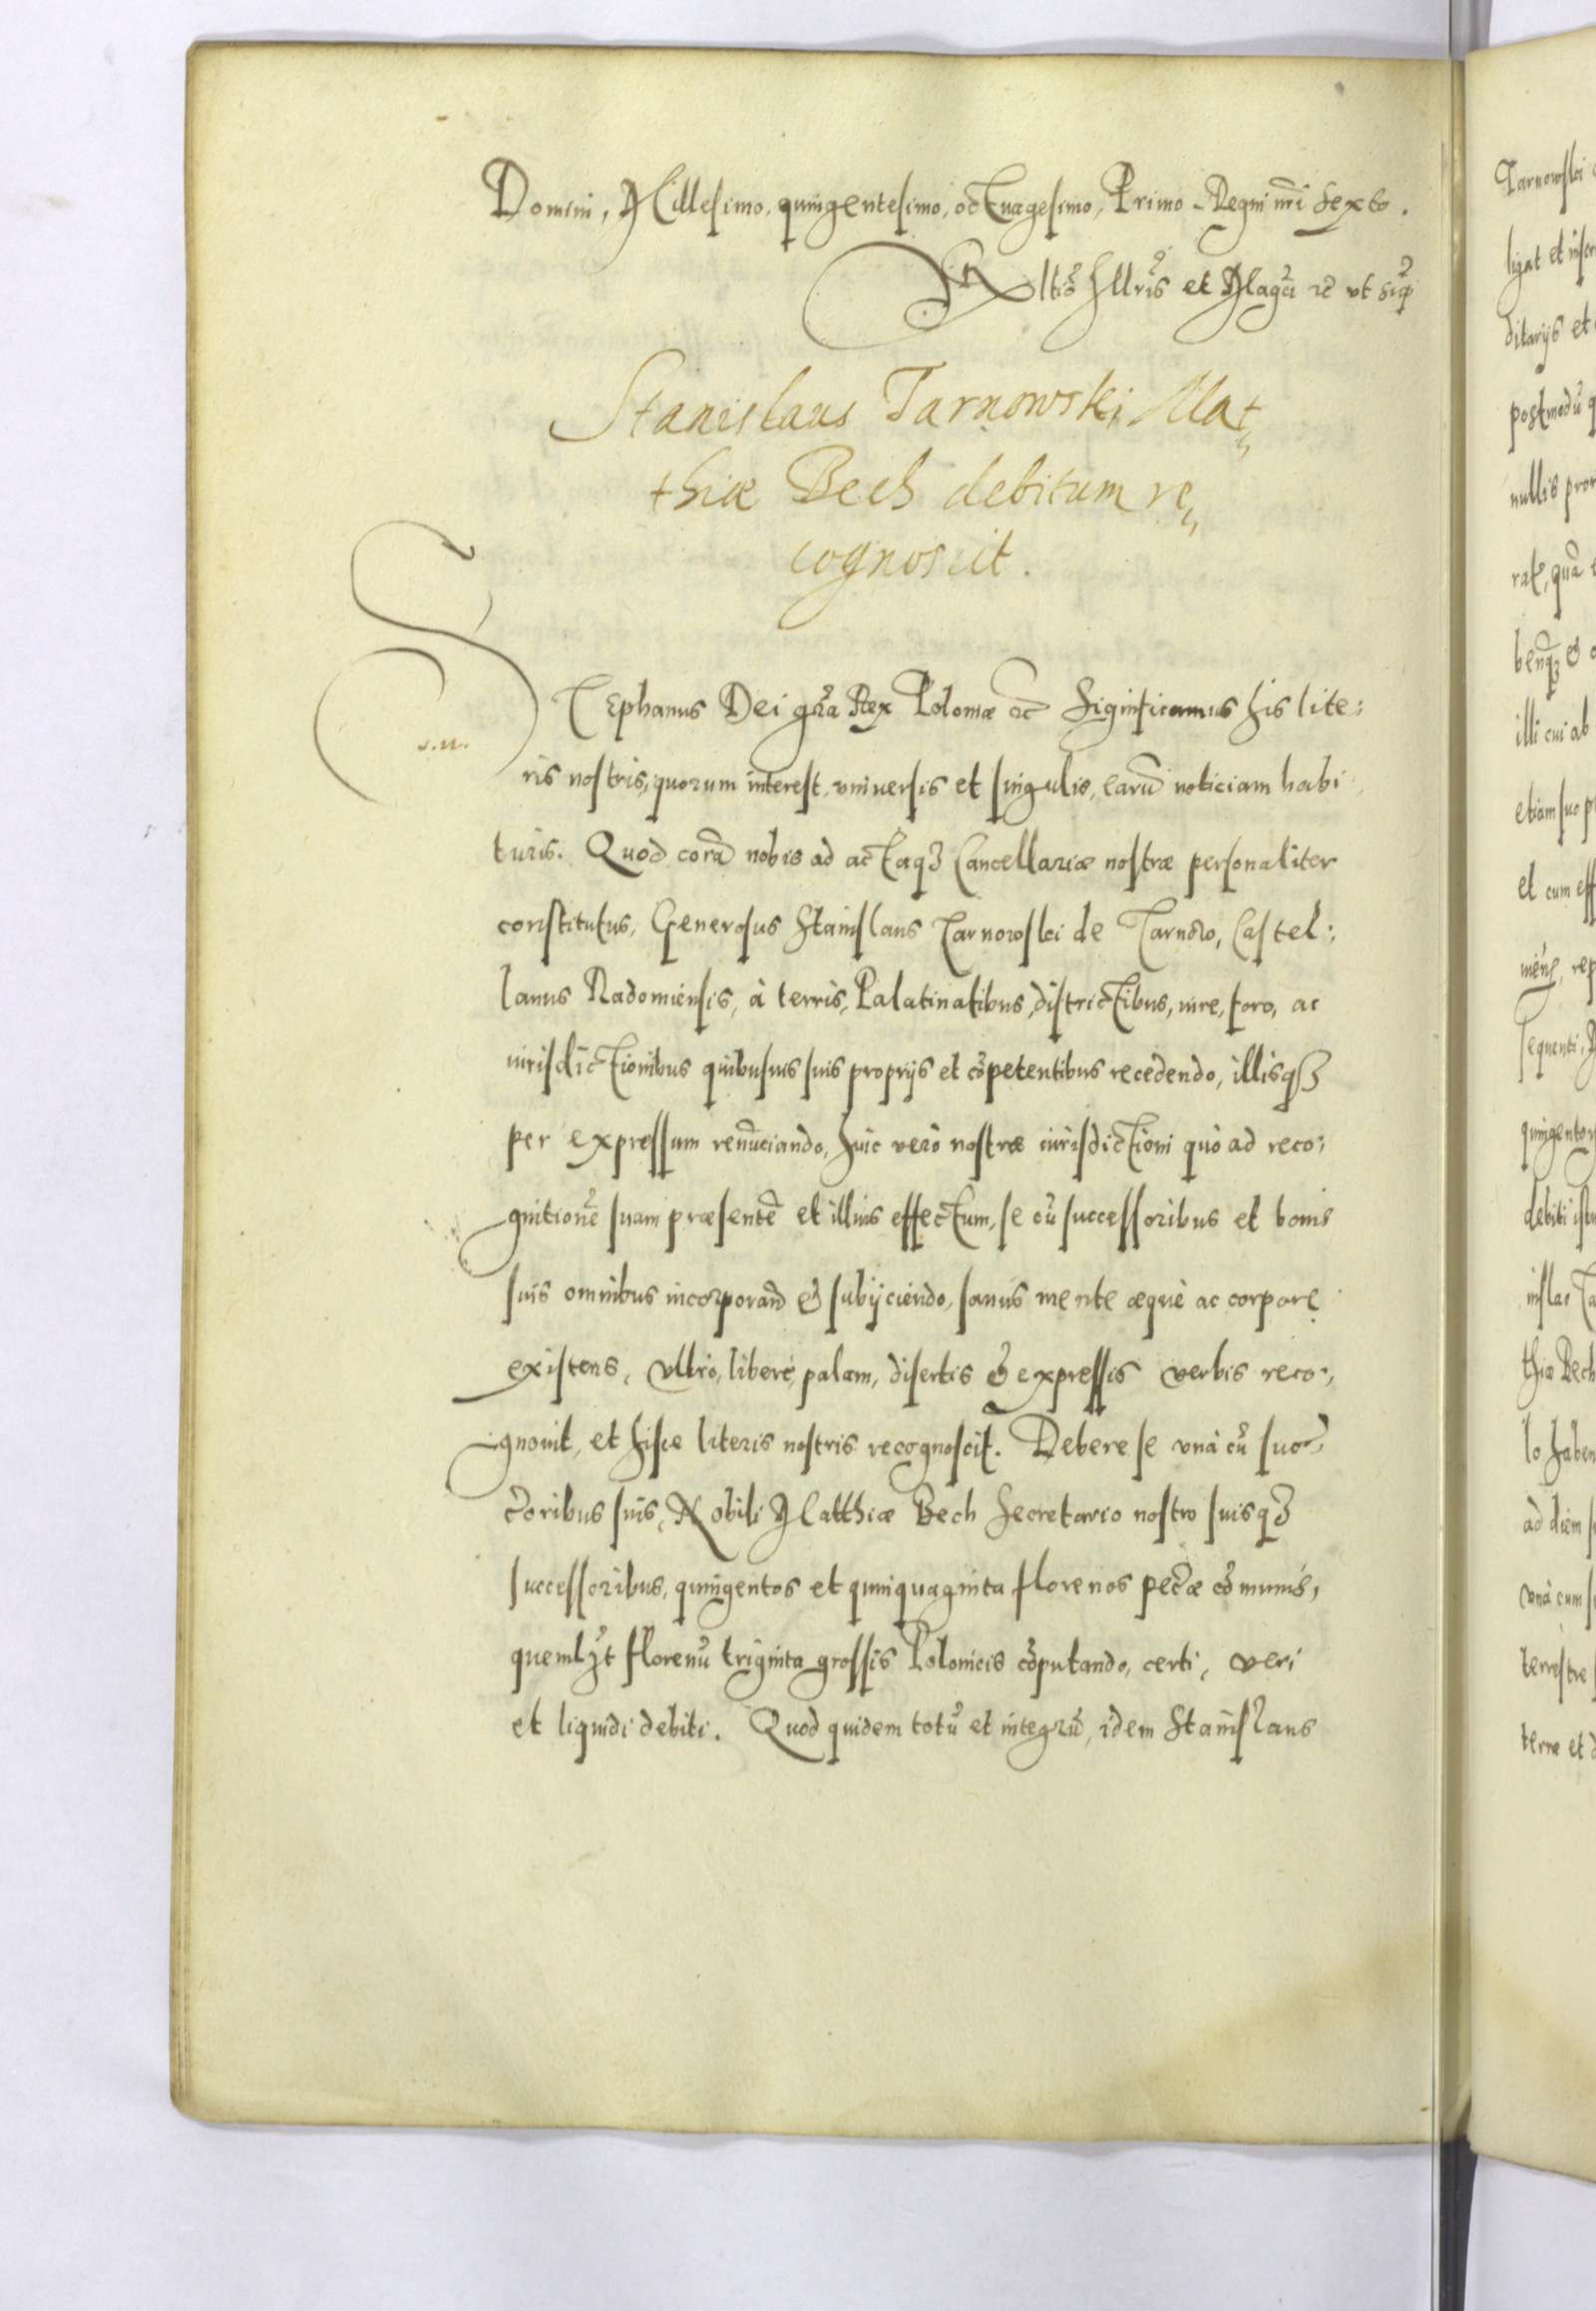 Domini, Millesimo, quingentesimo, octuagesimo, Primo Regni nr̃i sexto.
Rltiõ Illris et Magci rc̃ ut sup
Stanislaus Tarnowski Mat„
thiæ Bech debitum re„
cognoscit.
STEphanus Dei gr̃a Rex Poloniæ etc̃ Significamus his lite:
ris nostris, quorum interest, vniuersis et singulis, earũ noticiam habi
turis. Quod corã nobis ad actaqȝ Cancellariæ nostræ personaliter
constitutus, Generosus Stanislaus Tarnowski de Tarnow, Castel:
lanus Radomiensis, à terris, Palatinatibus, districtibus, iure, foro, ac
iurisdictionibus quibusuis suis proprijs et cõpetentibus recedendo, illisqȝ
per expressum renũciando, huic verò nostræ iurisdictioni quò ad reco:
gnitionẽ suam præsentẽ et illius effectum, se cũ successoribus et bonis
suis omnibus incorporand̃ & subijciendo, sanus mente æquè ac corpore
existens, vltro, liberè, palam, disertis & expressis verbis reco:
gnouit, et hisce literis nostris recognoscit. Debere se vnà cũ suc
c̃oribus suis, Nobili Matthiæ Bech Secretario nostro suisqȝ
successoribus, quingentos et quinquaginta florenos pec̃æ cõmunis,
quemlȝt florenũ triginta grossis Polonicis cõputando, certi, veri
et liquidi debiti. Quod quidem totũ et integrũ, idem Stanislaus